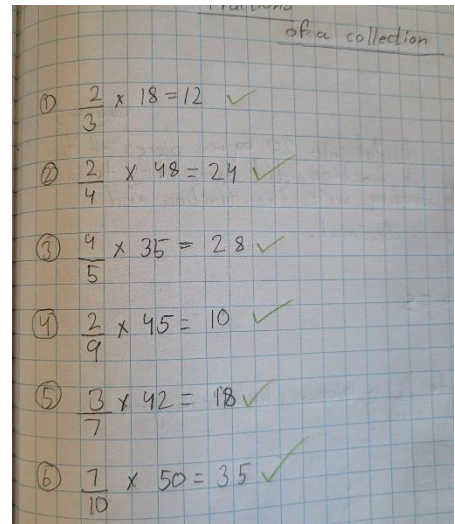 Fractions
of a collection
① 2/3 × 18 = 12 ✓
② 2/4 × 48 = 24 ✓
③ 4/5 × 35 = 28 ✓
④ 2/9 × 45 = 10 ✓
⑤ 3/7 × 42 = 18 ✓
⑥ 7/10 × 50 = 35 ✓